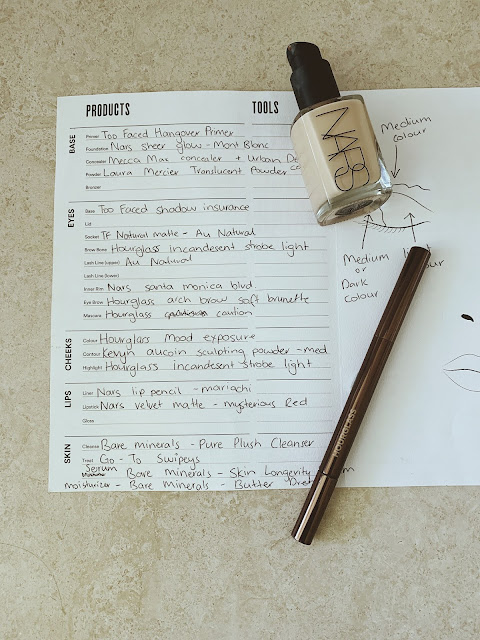 PRODUCTS
TOOLS
BASE
Primer Too Faced Hangover Primer
Foundation Nars sheer glow - Mont Blanc
Concealer Mecca Max concealer + Urban
Powder Laura Mercier Translucent Powder
Bronzer
EYES
Base Too Faced shadow insurance
Lid
Socket TF Natural matte - Au Natural
Brow Bone Hourglass Incandesent strobe light
Lash Line (upper) Au Natural
Lash Line (lower)
Inner Rim Nars santa monica blvd.
Eye Brow Hourglass arch brow soft brunette
Mascara Hourglass caution
CHEEKS
Colour Hourglass Mood exposure
Contour Kevyn aucoin sculpting powder - med
Highlight Hourglass Incandesent strobe light
LIPS
Liner Nars lip pencil - mariachi
Lipstick Nars velvet matte - mysterious Red
Gloss
SKIN
Cleanse Bare minerals - Pure Plush Cleanser
Treat Go - To Swipeys
Serum Bare Minerals - Skin Longevity
moisturizer - Bare Minerals - Butter
Medium
colour
Medium
or
Dark
colour
NARS
HOURGLASS